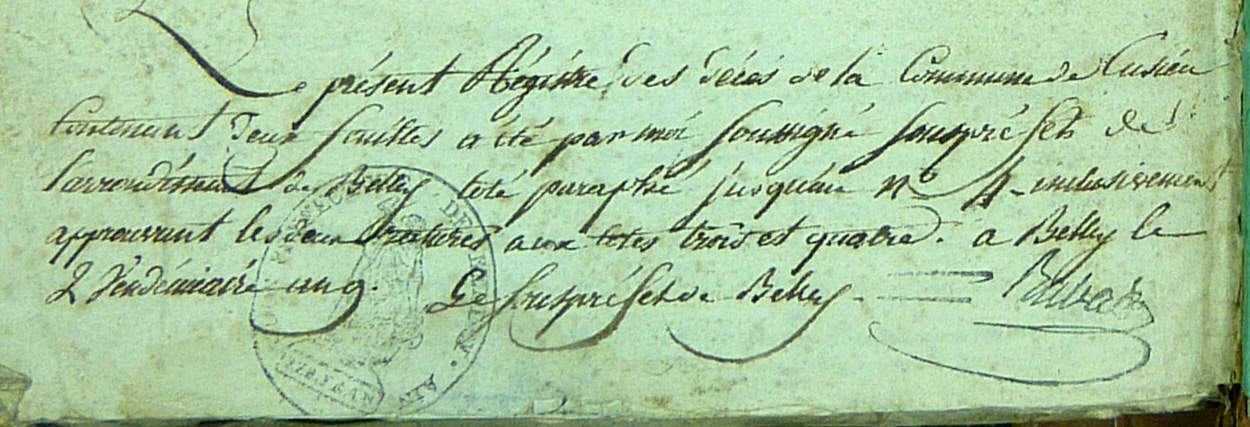 Le présent Régistre des décès de la Commune de Cusieu
Contenant deux feuilles a été par moi soussigné souspréfet de
l'arrondissement de Belley coté paraphé jusqu'au n.° 4. inclusivement
approuvant les deux ratures aux cotes trois et quatre. a Belley le
2 Vendémiaire an 9. Le souspréfet de Belley
AIN